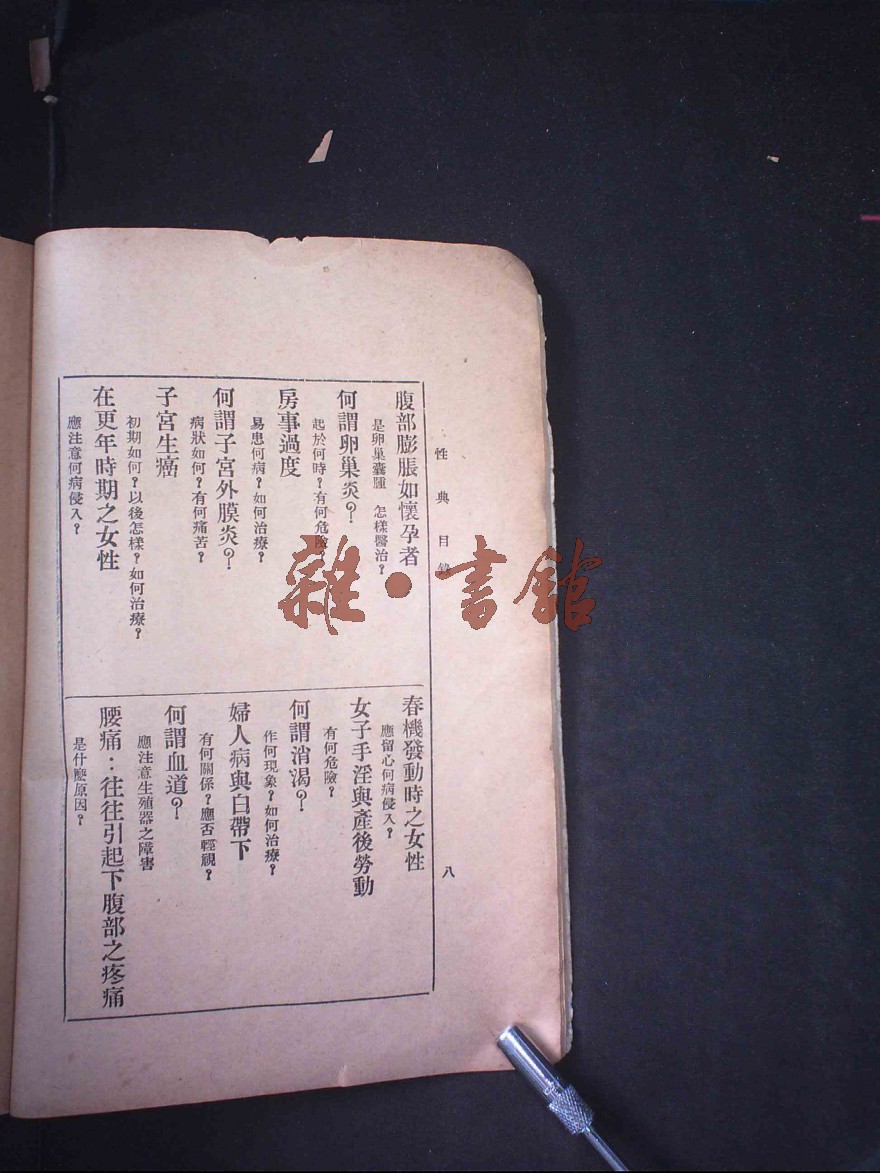 性典目錄
八
腹部膨脹如懷孕者
是卵巢囊腫　怎樣醫治？
何謂卵巢炎？
起於何時？有何危險？
房事過度
易患何病？如何治療？
何謂子宮外膜炎？
病狀如何？有何痛苦？
子宮生癌
初期如何？以後怎樣？如何治療？
在更年時期之女性
應注意何病侵入？
春機發動時之女性
應留心何病侵入？
女子手淫與產後勞動
有何危險？
何謂消渴？
作何現象？如何治療？
婦人病與白帶下
有何關係？應否輕視？
何謂血道？
應注意生殖器之障害
腰痛：往往引起下腹部之疼痛
是什麼原因？
雜·書館